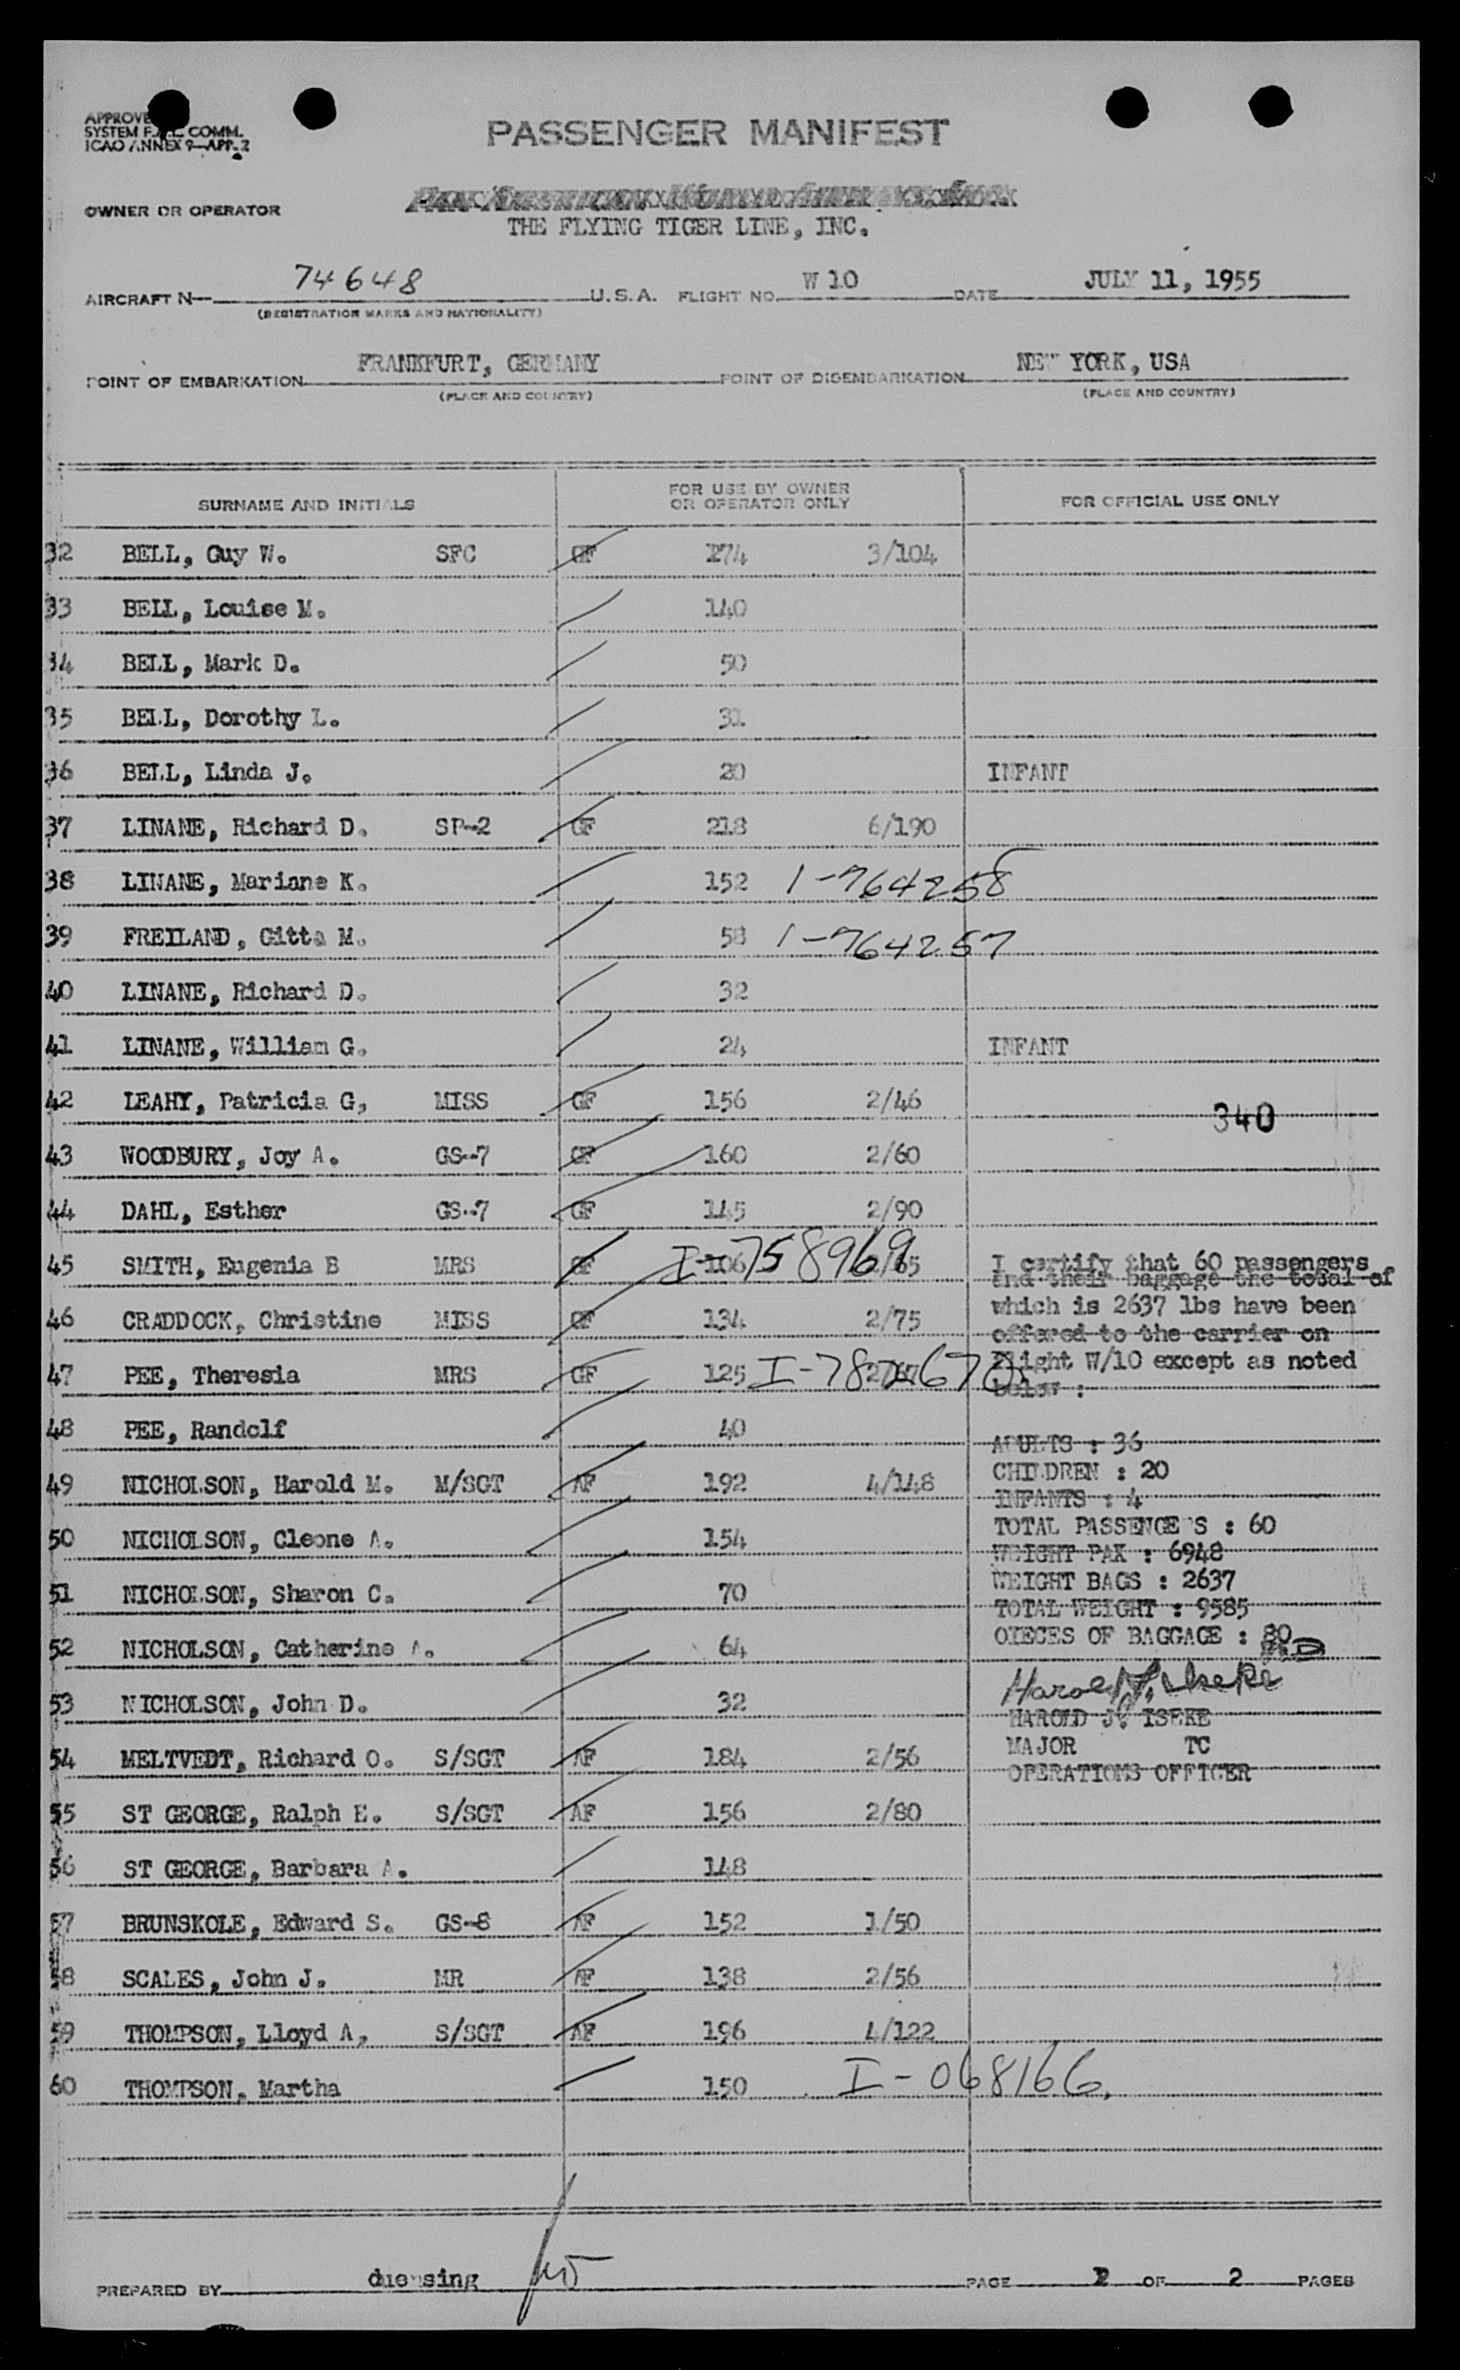 PASSENGER MANIFEST
SYSTEM F.A.L. COMM.
ICAO ANNEX 9—APP. 2
OWNER OR OPERATOR
THE FLYING TIGER LINE, INC.
AIRCRAFT N— 74648 U.S.A. FLIGHT NO. W 10 DATE JULY 11, 1955
(REGISTRATION MARKS AND NATIONALITY)
POINT OF EMBARKATION FRANKFURT, GERMANY POINT OF DISEMBARKATION NEW YORK, USA
(PLACE AND COUNTRY) (PLACE AND COUNTRY)
SURNAME AND INITIALS FOR USE BY OWNER OR OPERATOR ONLY FOR OFFICIAL USE ONLY
32 BELL, Guy W. SFC GF 174 3/104
33 BELL, Louise M. 140
34 BELL, Mark D. 50
35 BELL, Dorothy L. 31
36 BELL, Linda J. 20 INFANT
37 LINANE, Richard D. SP-2 GF 218 6/190
38 LINANE, Mariane K. 152 1-764258
39 FREILAND, Gitta M. 58 1-764257
40 LINANE, Richard D. 32
41 LINANE, William G. 24 INFANT
42 LEAHY, Patricia G, MISS GF 156 2/46
340
43 WOODBURY, Joy A. GS-7 GF 160 2/60
44 DAHL, Esther GS-7 GF 145 2/90
45 SMITH, Eugenia B MRS GF 106 I-758969
46 CRADDOCK, Christine MISS GF 134 2/75
47 PEE, Theresia MRS GF 125
48 PEE, Randolf 40
49 NICHOLSON, Harold M. M/SGT AF 192 4/148
50 NICHOLSON, Cleone A. 154
51 NICHOLSON, Sharon C. 70
52 NICHOLSON, Catherine A. 64
53 NICHOLSON, John D. 32
54 MELTVEDT, Richard O. S/SGT AF 184 2/56
55 ST GEORGE, Ralph E. S/SGT AF 156 2/80
56 ST GEORGE, Barbara A. 148
57 BRUNSKOLE, Edward S. GS-8 AF 152 1/50
58 SCALES, John J. MR AF 138 2/56
59 THOMPSON, Lloyd A, S/SGT AF 196 4/122
60 THOMPSON, Martha 150 I-068166.
I certify that 60 passengers
and their baggage the total of
which is 2637 lbs have been
offered to the carrier on
Flight W/10 except as noted
below :
ADULTS : 36
CHILDREN : 20
INFANTS : 4
TOTAL PASSENGERS : 60
WEIGHT PAX : 6948
WEIGHT BAGS : 2637
TOTAL WEIGHT : 9585
OIECES OF BAGGAGE : 80
Harold J. Iseke
HAROLD J. ISEKE
MAJOR TC
OPERATIONS OFFICER
PREPARED BY duensing PAGE 2 OF 2 PAGES